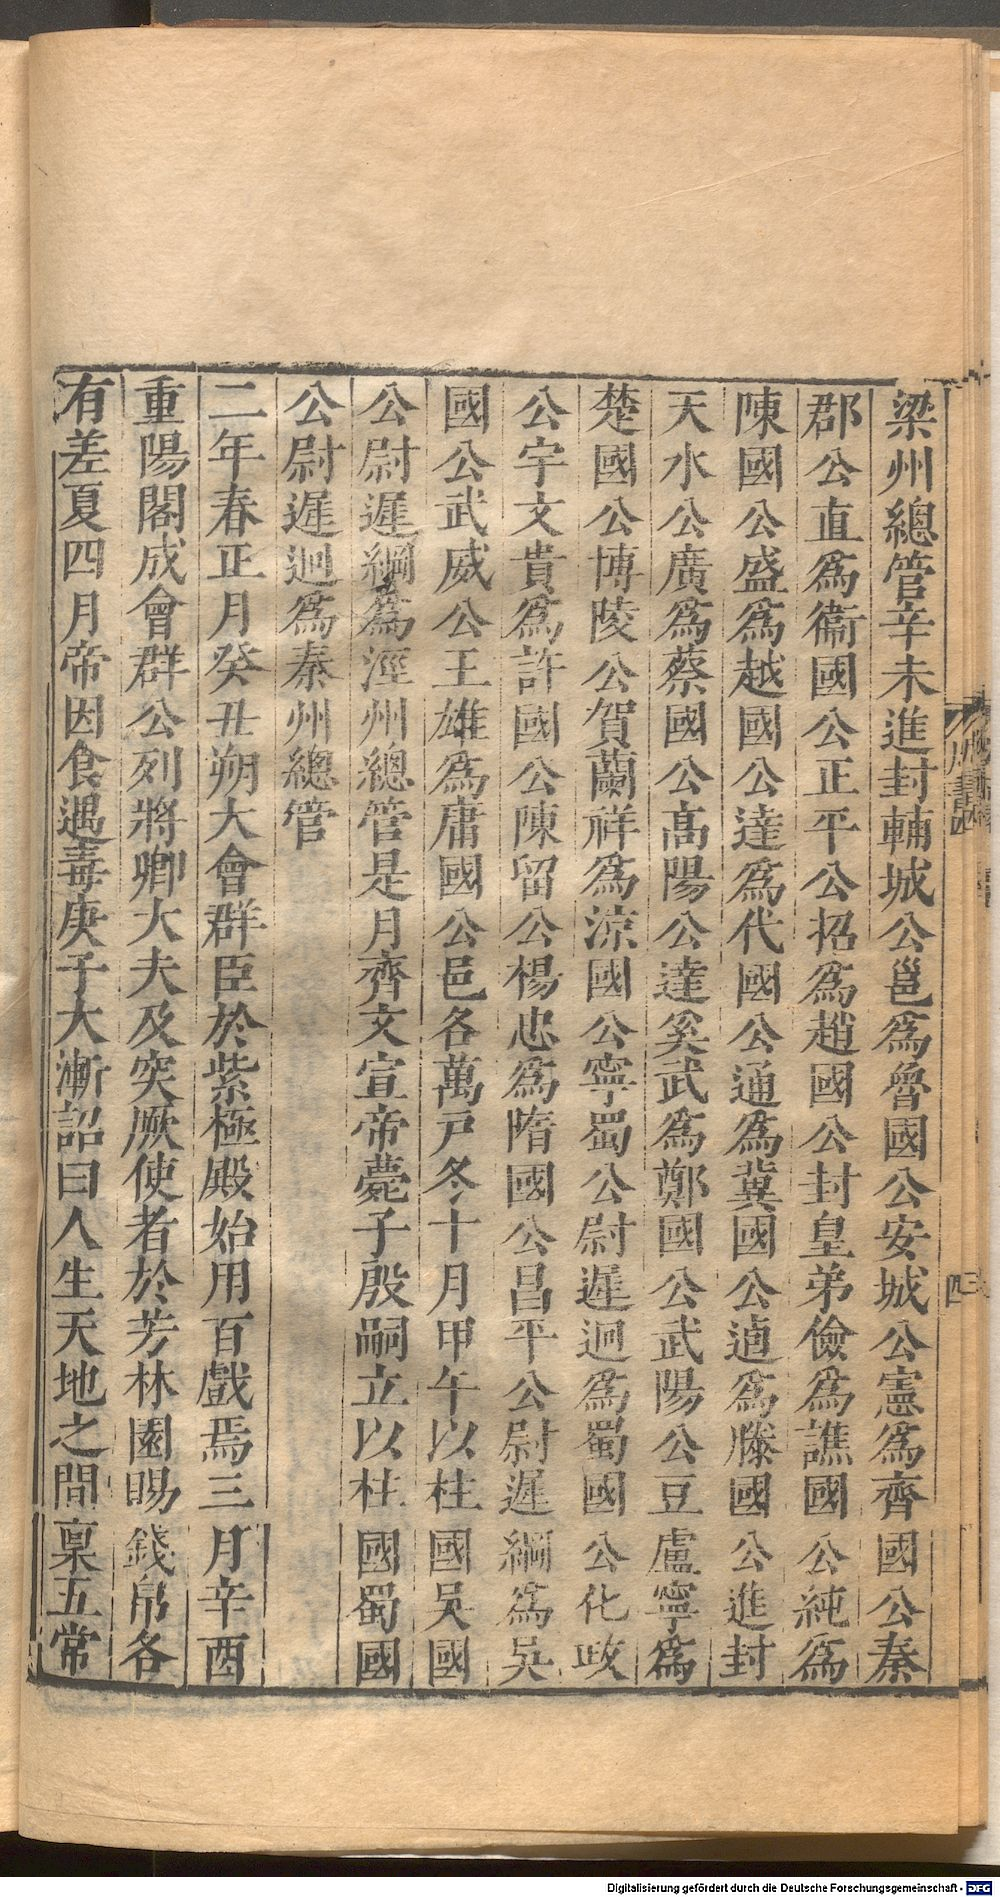 梁州總管辛未進封輔城公邕爲魯國公安城公憲爲齊國公秦
郡公直爲衞國公正平公招爲趙國公封皇弟儉爲譙國公純爲
陳國公盛爲越國公達爲代國公通爲冀國公逌爲滕國公進封
天水公廣爲蔡國公高陽公達奚武爲鄭國公武陽公豆盧寧爲
楚國公博陵公賀蘭祥爲涼國公寧蜀公尉遲迥爲蜀國公化政
公宇文貴爲許國公陳留公楊忠爲隋國公昌平公尉遲綱爲吳
國公武威公王雄爲庸國公邑各萬戸冬十月甲午以柱國吳國
公尉遲綱爲涇州總管是月齊文宣帝薨子殷嗣立以柱國蜀國
公尉遲迥爲秦州總管
二年春正月癸丑朔大會群臣於紫極殿始用百戲焉三月辛酉
重陽閣成會群公列將卿大夫及突厥使者於芳林園賜錢帛各
有差夏四月帝因食遇毒庚子大漸詔曰人生天地之間稟五常
Digitalisierung gefördert durch die Deutsche Forschungsgemeinschaft - DFG